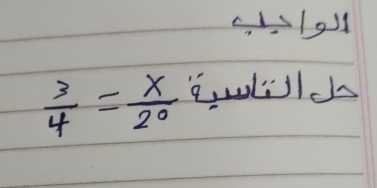 الواجب
حل التناسب: 3/4 = x/20